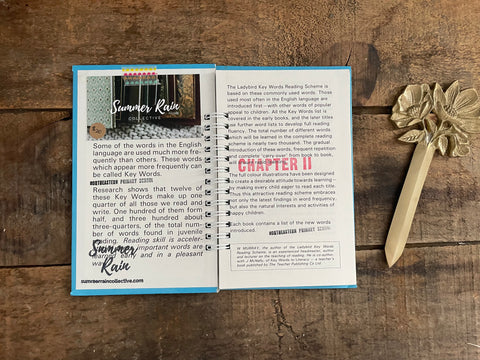 Summer Rain
COLLECTIVE
Some of the words in the English
language are used much more fre-
quently than others. These words
which appear more frequently can
be called Key Words.
NORTHEASTERN PRIMARY SCHOOL
Research shows that twelve of
these Key Words make up one
quarter of all those we read and
write. One hundred of them form
half, and three hundred about
three-quarters, of the total num-
ber of words found in juvenile
reading. Reading skill is acceler-
important words are
learned early and in a pleasant
Summer
Rain
summerraincollective.com
The Ladybird Key Words Reading Scheme is
based on these commonly used words. Those
used most often in the English language are
introduced first—with other words of popular
appeal to children. All the Key Words list is
covered in the early books, and the later titles
use further word lists to develop full reading
fluency. The total number of different words
which will be learned in the complete reading
scheme is nearly two thousand. The gradual
introduction of these words, frequent repetition
and complete "carry-over" from book to book,
CHAPTER 11
The full colour illustrations have been designed
to create a desirable attitude towards learning—
by making every child eager to read each title.
Thus this attractive reading scheme embraces
not only the latest findings in word frequency,
but also the natural interests and activities of
happy children.
Each book contains a list of the new words
introduced.
NORTHEASTERN PRIMARY SCHOOL
W. MURRAY, the author of the Ladybird Key Words
Reading Scheme, is an experienced headmaster, author
and lecturer on the teaching of reading. He is co-author,
with J. McNally, of Key Words to Literacy—a teacher's
book published by The Teacher Publishing Co Ltd.